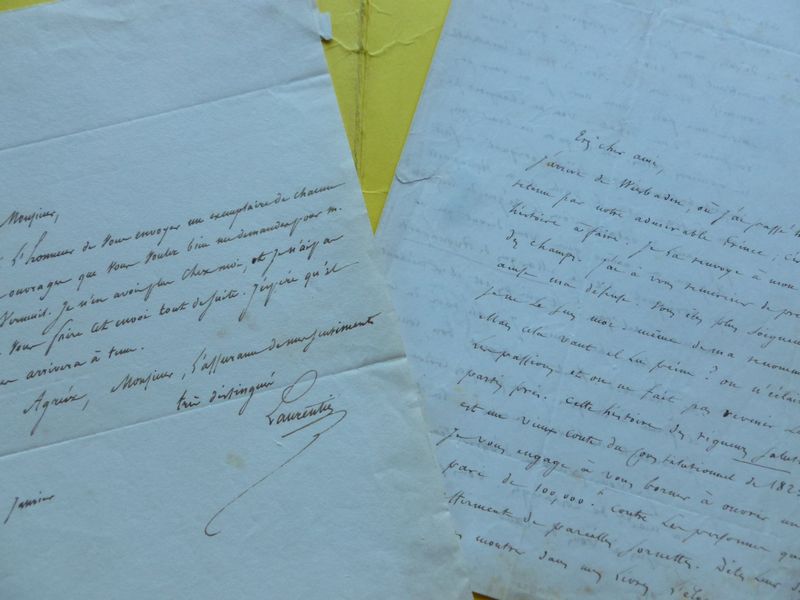 Monsieur,
l'honneur de vous envoyer un exemplaire de chacun
ouvrages que vous voulez bien me demander pour m.
Verneuil. Je n'en avois plus chez moi, et je n'ai pu
vous faire cet envoi tout de suite. J'espère qu'il
arrivera à tems.
Agréez, Monsieur, l'assurance de mes sentimens
très distingués
Laurentie
Janvier
Mon cher ami,
J'arrive de Wiesbaden, où j'ai passé
retenu par notre admirable Prince ;
histoire à faire. Je la renvoye à mon
des champs. J'ai à vous remercier de
ma défense. Vous êtes plus soigneux
je ne le suis moi-même de ma
Mais cela vaut il la peine ? on n'éclaire
les passions et on ne fait pas revenir les
partis pris. Cette histoire des
est un vieux conte du constitutionnel de 182
Je vous engage à vous borner à ouvrir un
pari de 100,000 f contre les personnes qui
de pareilles sornettes. Dites leur
montrer dans mes livres